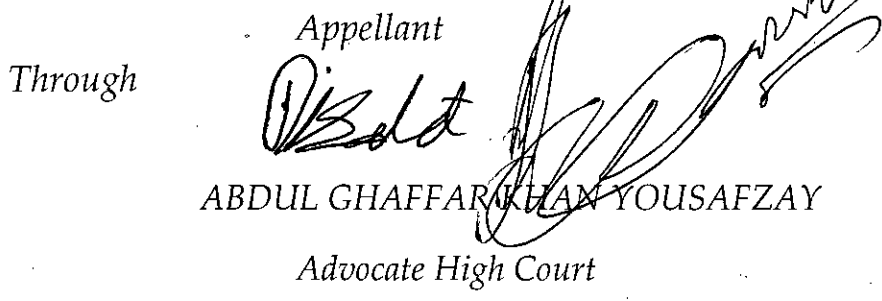 Appellant
Through
ABDUL GHAFFAR KHAN YOUSAFZAY
Advocate High Court